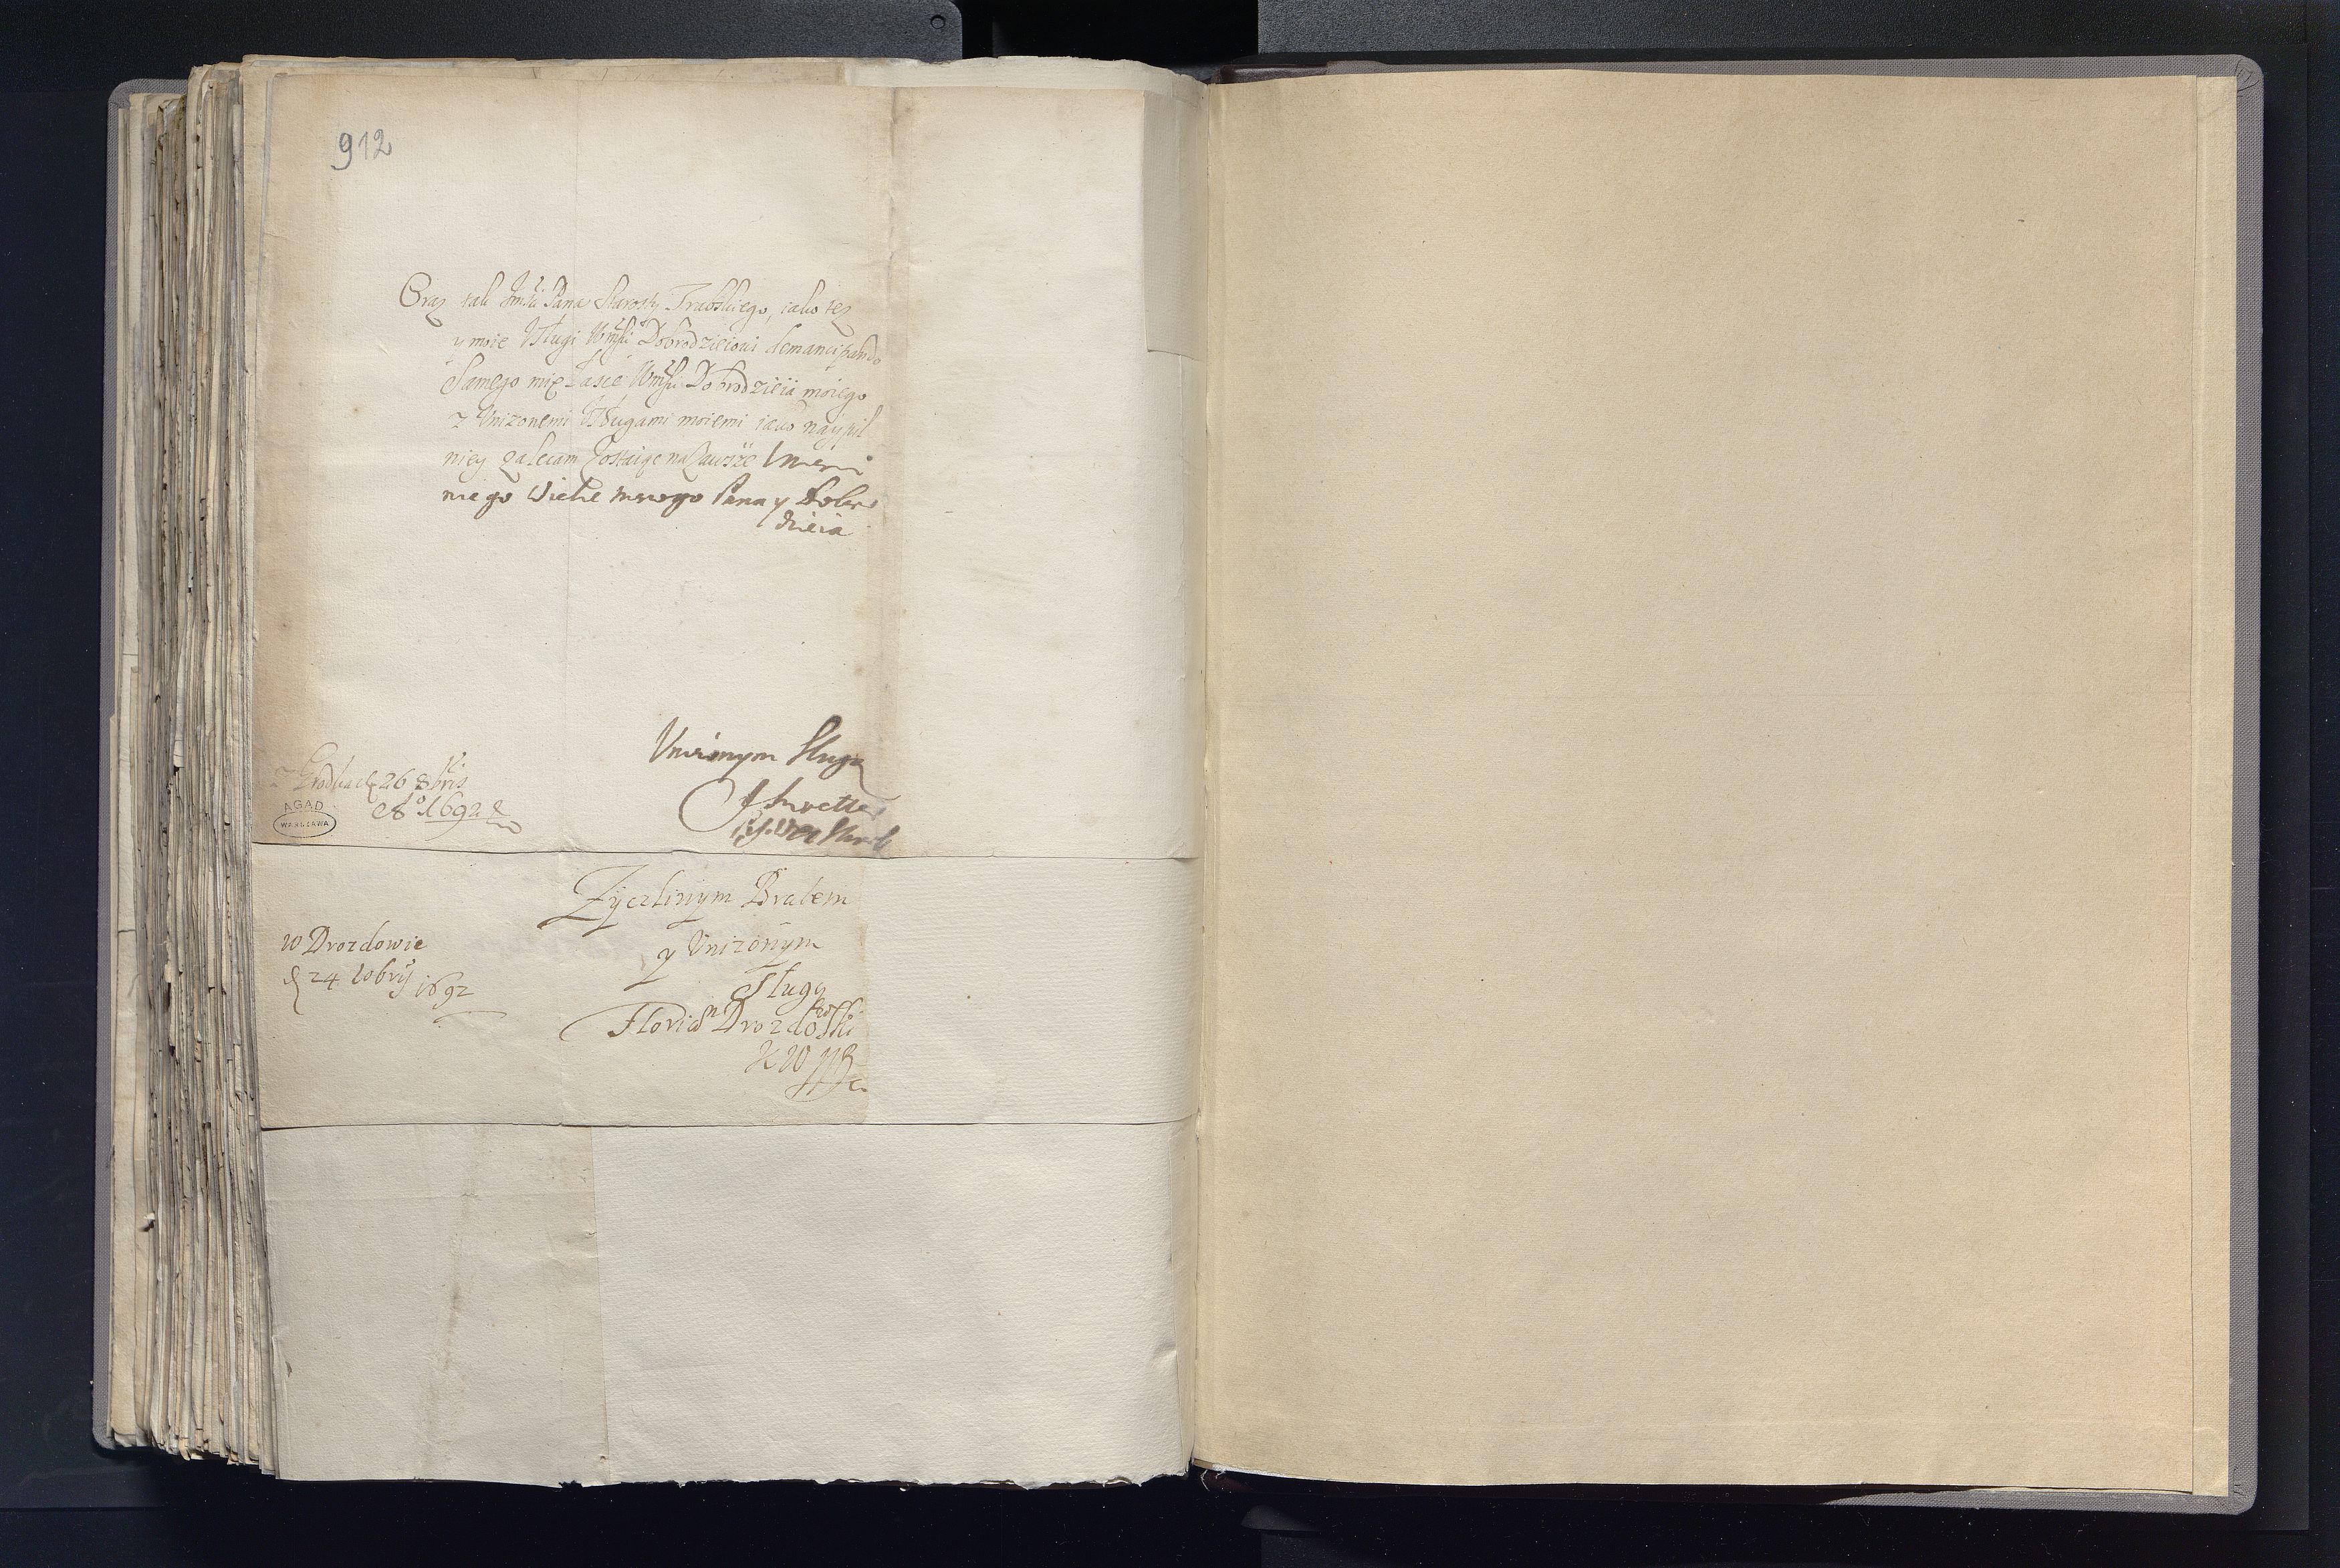 912
Oraz tak Jmści Pana Starosty Trabskiego, iako tez
y moie Usługi Wmści Dobrodzieiowi demancipando
Samego mię Łasce Wmści Dobrodzieia moiego
z Unizonemi Usługami moiemi iako naypil
niey zalecam Zostaiąc na Zawsze
mego Wielce Pana y Dobro
dzieia
Unizonym Sługą
26 8bris
Aº 1692
AGAD
WARSZAWA
Zÿczliwym Bratem
y Unizonym
Sługą
Florian Drozdowski
w Drozdowie
d 24 10bris 1692